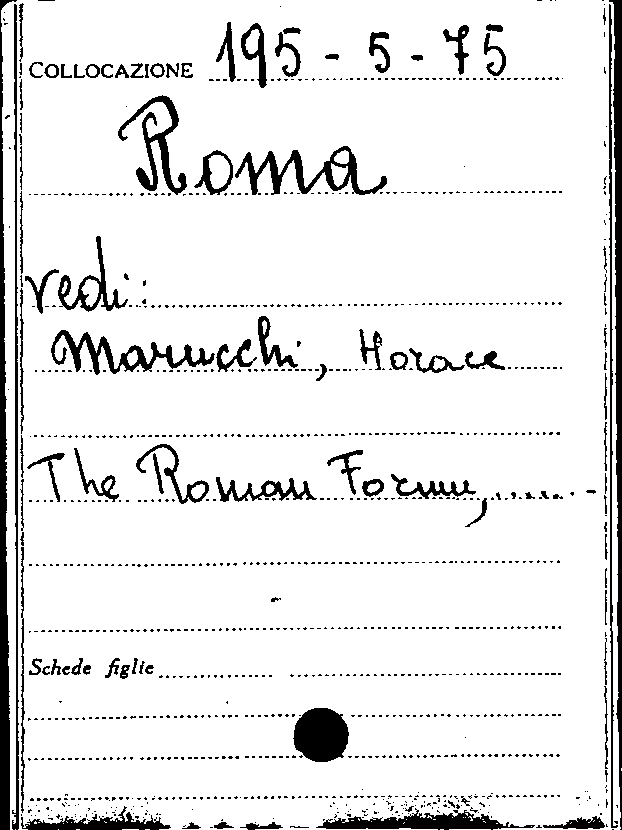 COLLOCAZIONE 195-5-75
Roma
vedi:
Marucchi, Horace
The Roman Forum,.......-
Schede figlie